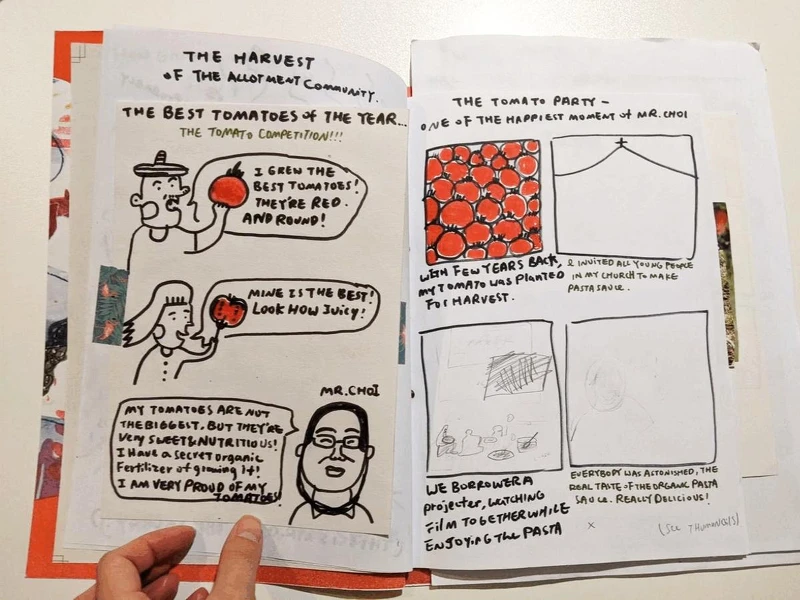 THE HARVEST
OF THE ALLOTMENT COMMUNITY.
THE BEST TOMATOES OF THE YEAR...
THE TOMATO COMPETITION!!!
I GREW THE
BEST TOMATOES!
THEY'RE RED.
AND ROUND!
MINE IS THE BEST!
LOOK HOW JUICY!
MR.CHOI
MY TOMATOES ARE NOT
THE BIGGEST, BUT THEY'RE
VERY SWEET & NUTRITIOUS!
I HAVE A SECRET ORGANIC
FERTILIZER OF GROWING IT!
I AM VERY PROUD OF MY
TOMATOES!
THE TOMATO PARTY -
ONE OF THE HAPPIEST MOMENT OF MR.CHOI
WITH FEW YEARS BACK,
MY TOMATO WAS PLANTED
FOR HARVEST.
I INVITED ALL YOUNG PEOPLE
IN MY CHURCH TO MAKE
PASTA SAUCE.
WE BORROWER A
projecter, WATCHING
FILM TOGETHER WHILE
ENJOYING THE PASTA
EVERYBODY WAS ASTONISHED, THE
REAL TASTE OF THE ORGANIC PASTA
SAUCE. REALLY DELICIOUS!
x
(See